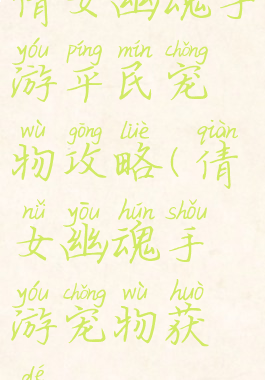 倩女幽魂手
yóu píng mín chǒng
游平民宠
wù gōng lüè qiàn
物攻略(倩
nǚ yōu hún shǒu
女幽魂手
yóu chǒng wù huò
游宠物获
dé